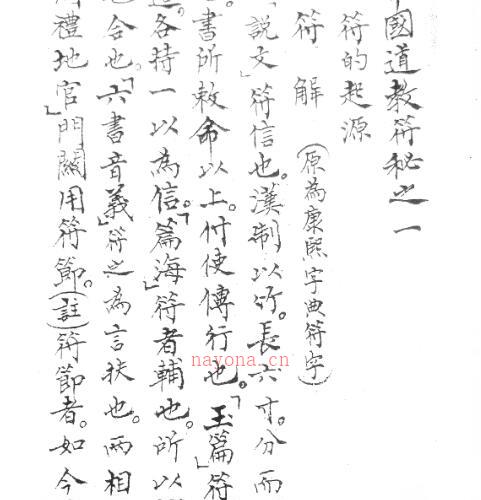 中國道教符秘之一
符的起源
符解（原為康熙字典符字）
說文」符信也。漢制以竹。長六寸。分而
書所敕命以上。付使傳行也。「玉篇」符
各持一以為信。「篇海」符者輔也。所以
合也。「六書音義」符之為言扶也。兩相
禮地官」門關用符節。（註）符節者。如今
nayona.cn